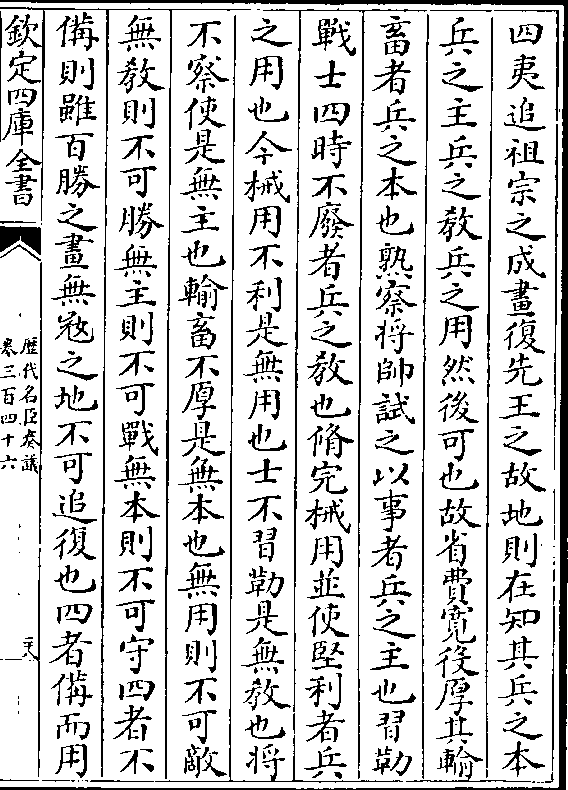 四夷追祖宗之成畫復先王之故地則在知其兵之本
兵之主兵之教兵之用然後可也故省費寛役厚其輸
畜者兵之本也熟察将帥試之以事者兵之主也習勒
戰士四時不廢者兵之教也脩完械用並使堅利者兵
之用也今械用不利是無用也士不習勒是無教也将
不察使是無主也輸畜不厚是無本也無用則不可敵
無教則不可勝無主則不可戰無本則不可守四者不
備則雖百勝之畫無㓂之地不可追復也四者備而用
欽定四庫全書
歴代名臣奏議
卷三百四十六
二十八